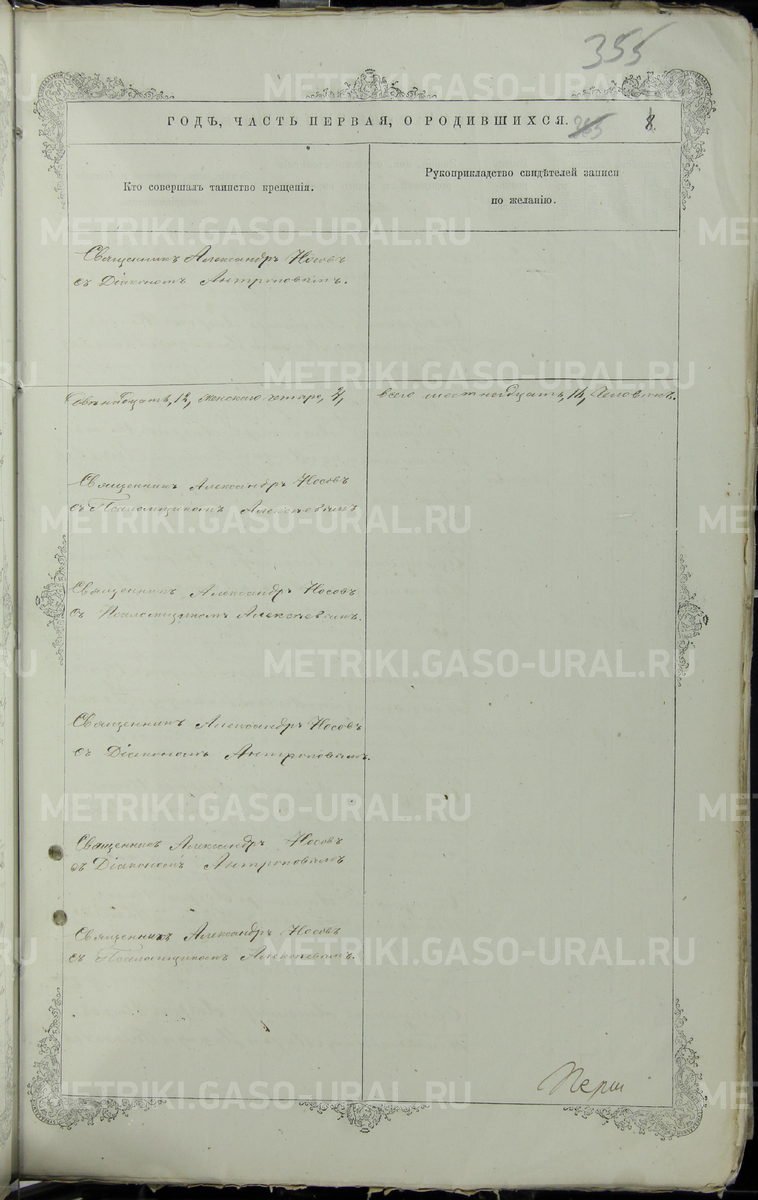 355
ГОДЪ, ЧАСТЬ ПЕРВАЯ, О РОДИВШИХСЯ. 365 8.
Кто совершалъ таинство крещенія.
Рукоприкладство свидѣтелей записи
по желанію.
Священникъ Александръ Носовъ
съ Діакономъ Антроповымъ.
двѣнадцать, 12, женскаго четыре, 4,
всего шестнадцать, 16, человѣкъ.
Священникъ Александръ Носовъ
съ Псаломщикомъ Алексѣевымъ
Священникъ Александръ Носовъ
съ Псаломщикомъ Алексѣевымъ.
Священникъ Александръ Носовъ
съ Діакономъ Антроповымъ.
Священникъ Александръ Носовъ
съ Діакономъ Антроповымъ
Священникъ Александръ Носовъ
съ Псаломщикомъ Алексѣевымъ.
METRIKI.GASO-URAL.RU